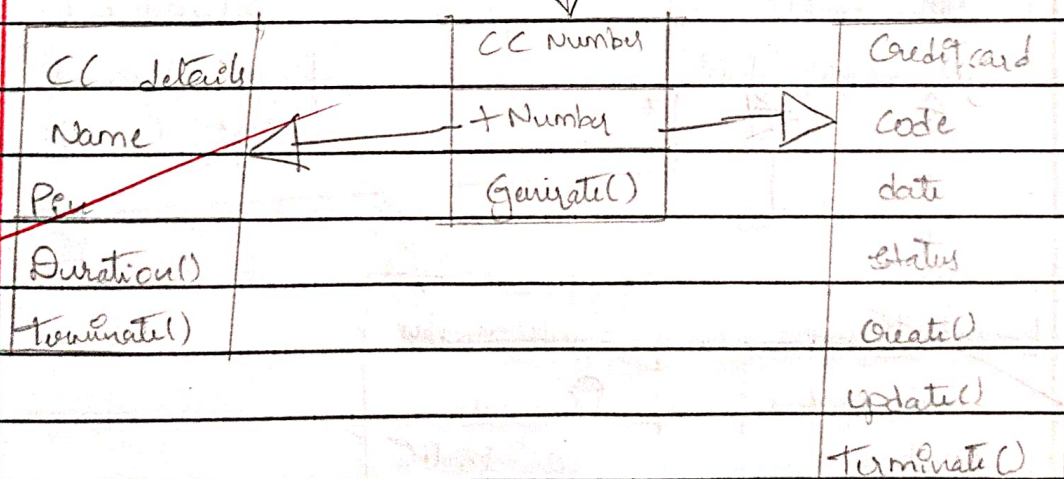 CC details
Name
Pin
Duration()
Terminate()
CC Number
+ Number
Genirate()
Credit card
Code
date
status
Create()
update()
Terminate()